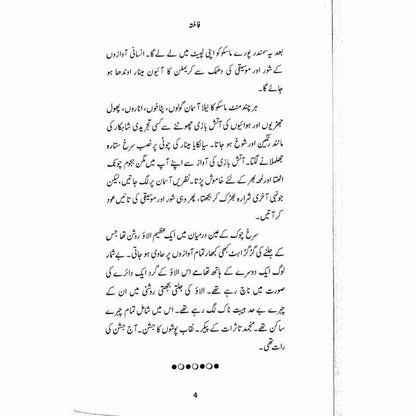 فاختہ
بعد یہ سمندر پورے ماسکو کو اپنی لپیٹ میں لے لے گا۔ انسانی آوازوں
کے شور اور موسیقی کی دھمک سے کریملن کا آئیون مینار اوندھا ہو
جائے گا۔
ہر چند منٹ ماسکو کا نیلا آسمان گولوں، پٹاخوں، اناروں، پھول
جھڑیوں اور ہوائیوں کی آتش بازی چھوٹنے سے کسی تجریدی شاہکار کی
مانند رنگین اور شوخ ہو جاتا۔ سپاسکایا مینار کی چوٹی پر نصب سرخ ستارہ
جھلملانے لگتا۔ آتش بازی کی آواز سے اپنے آپ میں مگن ہجوم چونک
اٹھتا اور لمحہ بھر کے لئے خاموش پڑتا۔ نظریں آسمان پر لگ جاتیں، لیکن
جونہی آخری شرارہ بھڑک کر بجھتا، پھر وہی شور اور موسیقی کی تانیں عود
کر آتیں۔
سرخ چوک کے عین درمیان میں ایک عظیم الاؤ روشن تھا جس
کے جلنے کی گڑگڑاہٹ کبھی کبھار تمام آوازوں پر حاوی ہو جاتی۔ بے شمار
لوگ ایک دوسرے کے ہاتھ تھامے اس الاؤ کے گرد ایک دائرے کی
صورت میں ناچ رہے تھے۔ الاؤ کی جلتی بجھتی روشنی میں ان کے
چہرے بے حد ہیبت ناک لگ رہے تھے۔ اس میں شامل تمام چہرے
ساکن تھے۔ منجمد تاثرات کے پیکر۔ نقاب پوشوں کا جشن۔ آج جشن کی
رات تھی۔
4